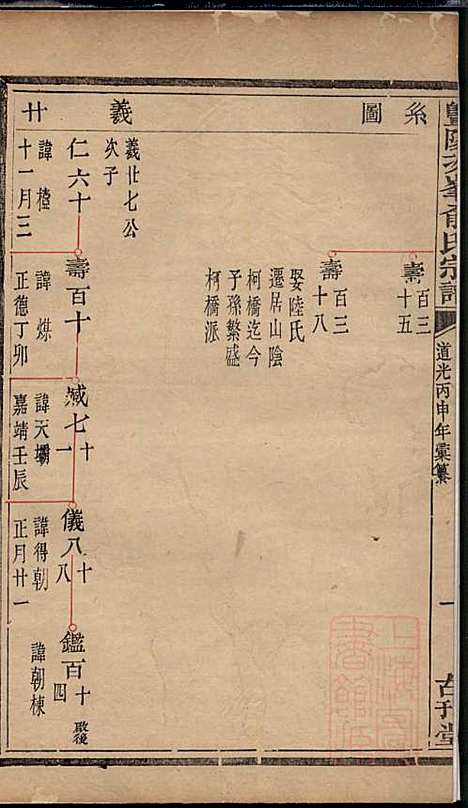 暨陽次峯俞氏宗譜
道光丙申年彙纂
一
古刊堂
系圖
羲
廿
壽百三十五
壽百三十八
娶陸氏
遷居山陰
柯橋迄今
子孫繁盛
柯橋派
羲廿七公
次子
仁六十
諱檯
十一月三
壽百十
諱煤
正德丁卯
臧七十一
諱天壩
嘉靖壬辰
儀八十八
諱得朝
正月廿一
鑑百十四
啟後
諱朝棟